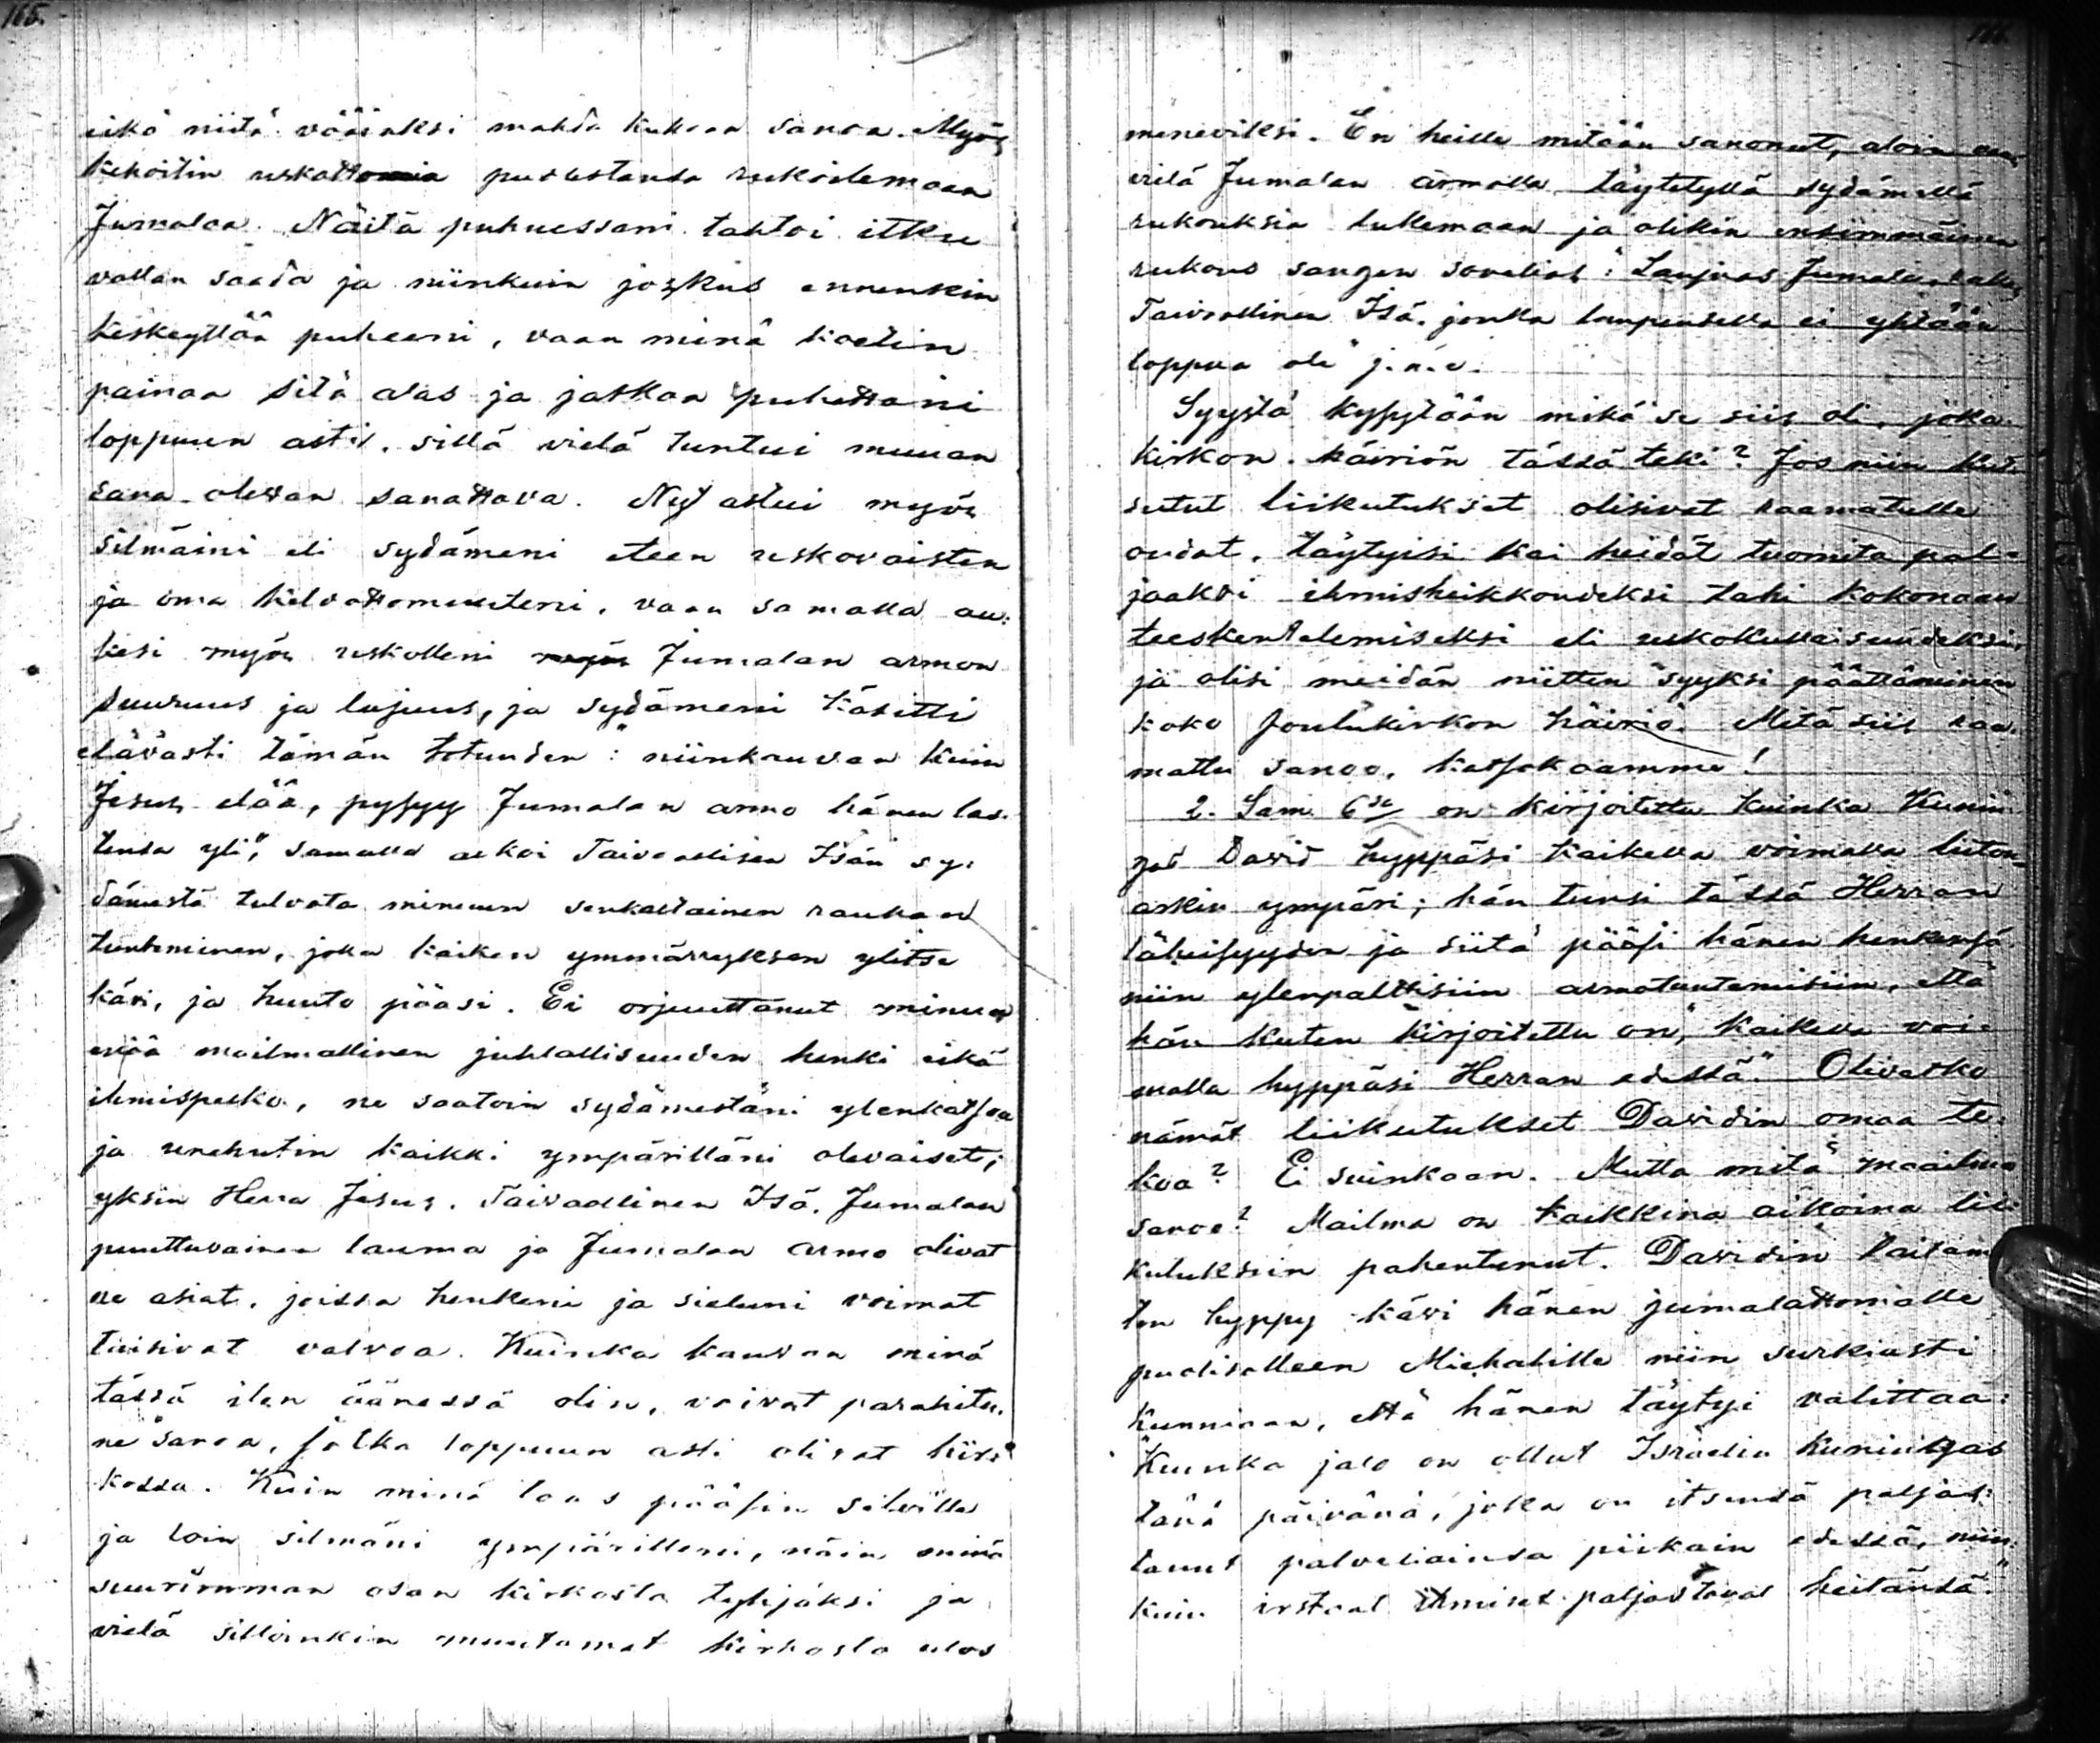 165.
eikä niitä vääräksi mahda kukaan sanoa. Myös
kehoitin uskottomia puolestansa rukoilemaan
Jumalaa. Näitä puhuessani tahtoi itku
vallan saada ja niinkuin joskus ennenkin
keskeyttää puheeni, vaan minä koetin
painaa sitä alas ja jatkaa puhettani
loppuun asti, sillä vielä tuntui muuan
sana olevan sanottava. Nyt astui myös
silmäini eli sydämeni eteen uskovaisten
ja oma kelvottomuuteni, vaan samalla au-
kesi myös uskolleni myös Jumalan armon
suuruus ja lujuus, ja sydämeni käsitti
elävästi tämän totuuden: "niinkauvan kuin
Jesus elää, pysyy Jumalan armo hänen las-
tensa yli", samalla alkoi Taivaallisen Isän sy-
dämestä tulvata minuun senkaltainen rauhan
tunteminen, joka kaiken ymmärryksen ylitse
kävi, ja huuto pääsi. Ei orjuuttanut minua
enää mailmallinen juhlallisuuden henki eikä
ihmispelko, ne saatoin sydämestäni ylenkatsoa
ja unehutin kaikki ympärilläni olevaiset;
yksin Herra Jesus, Taivaallinen Isä, Jumalan
puuttuvainen lauma ja Jumalan armo olivat
ne asiat, joissa henkeni ja sieluni voimat
taisivat valvoa. Kuinka kauvan minä
tässä ilon äänessä olin, voivat parahiten
ne sanoa, jotka loppuun asti olivat kir-
kossa. Kuin minä taas pääsin selville
ja loin silmäni ympärilleni, näin minä
suurimman osan kirkosta tyhjäksi ja
vielä silloinkin muutamat kirkosta ulos
meneviksi. En heille mitään sanonut, aloin
vielä Jumalan armolla täytetyllä sydämellä
rukouksia lukemaan ja olikin ensimmäinen
rukous sangen sovelias: "Laupias Jumala, rakas
Taivaallinen Isä, jonka laupeudella ei yhtään
loppua ole" j.n.e.
Syystä kysytään mikä se siis oli, joka
kirkon häiriön tässä teki? Jos niin kut-
sutut liikutukset olisivat raamatulle
oudot, täytyisi kai heidät tuomita pal-
jaaksi ihmisheikkoudeksi tahi kokonaan
teeskentelemiseksi eli uskokullaisuudeksi,
ja olisi meidän niitten syyksi päättäminen
koko Joulukirkon häiriö. Mitä siis raa-
mattu sanoo, katsokaamme!
2. Sam. 6 on kirjoitettu kuinka Kunin-
gas David hyppäsi kaikella voimalla liiton
arkin ympäri; hän tunsi tässä Herran
läheisyyden ja siitä pääsi hänen henkensä
niin ylenpalttisiin armotuntemisiin, että
hän kuten kirjoitettu on, "kaikella voi-
malla hyppäsi Herran edessä." Olivatko
nämät liikutukset Davidin omaa te-
koa? Ei suinkaan. Mutta mitä maailma
sanoo? Mailma on kaikkina aikoina lii-
kutuksiin pahentunut. Davidin
ton hyppy kävi hänen jumalattomalle
puolisolleen Michalille niin surkiasti
kunniaan, että hänen täytyi valittaa:
"Kuinka jalo on ollut Israelin kuningas
tänä päivänä, joka on itsensä paljas-
tanut palveliainsa piikain edessä, niin-
kuin irstaat ihmiset paljastavat heitänsä."